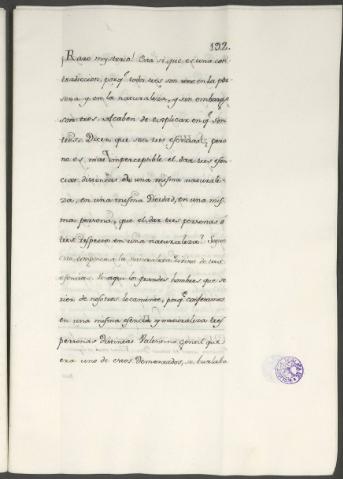 132.
¡Raro mysterio! Esta si que es una con
tradiccion, porqe todos tres son uno en la per
sona y en la naturaleza, y sin embargo
son tres. Acaben de explicar en qe son
tres. Dicen que son tres esencias; pero
no es mas imperceptible el dar tres esen
cias distintas de una misma naturale
za, en una misma Deidad, en una mis
ma persona, que el dar tres personas ó
tres respetos en una naturaleza?
la naturaleza divina de tres
esencias. He aqui los grandes hombres que se
rien de nosotros porqe confesamos
en una misma esencia y naturaleza tres
personas distintas. Valentino Gentil que
era uno de esos Demonados, se burlaba